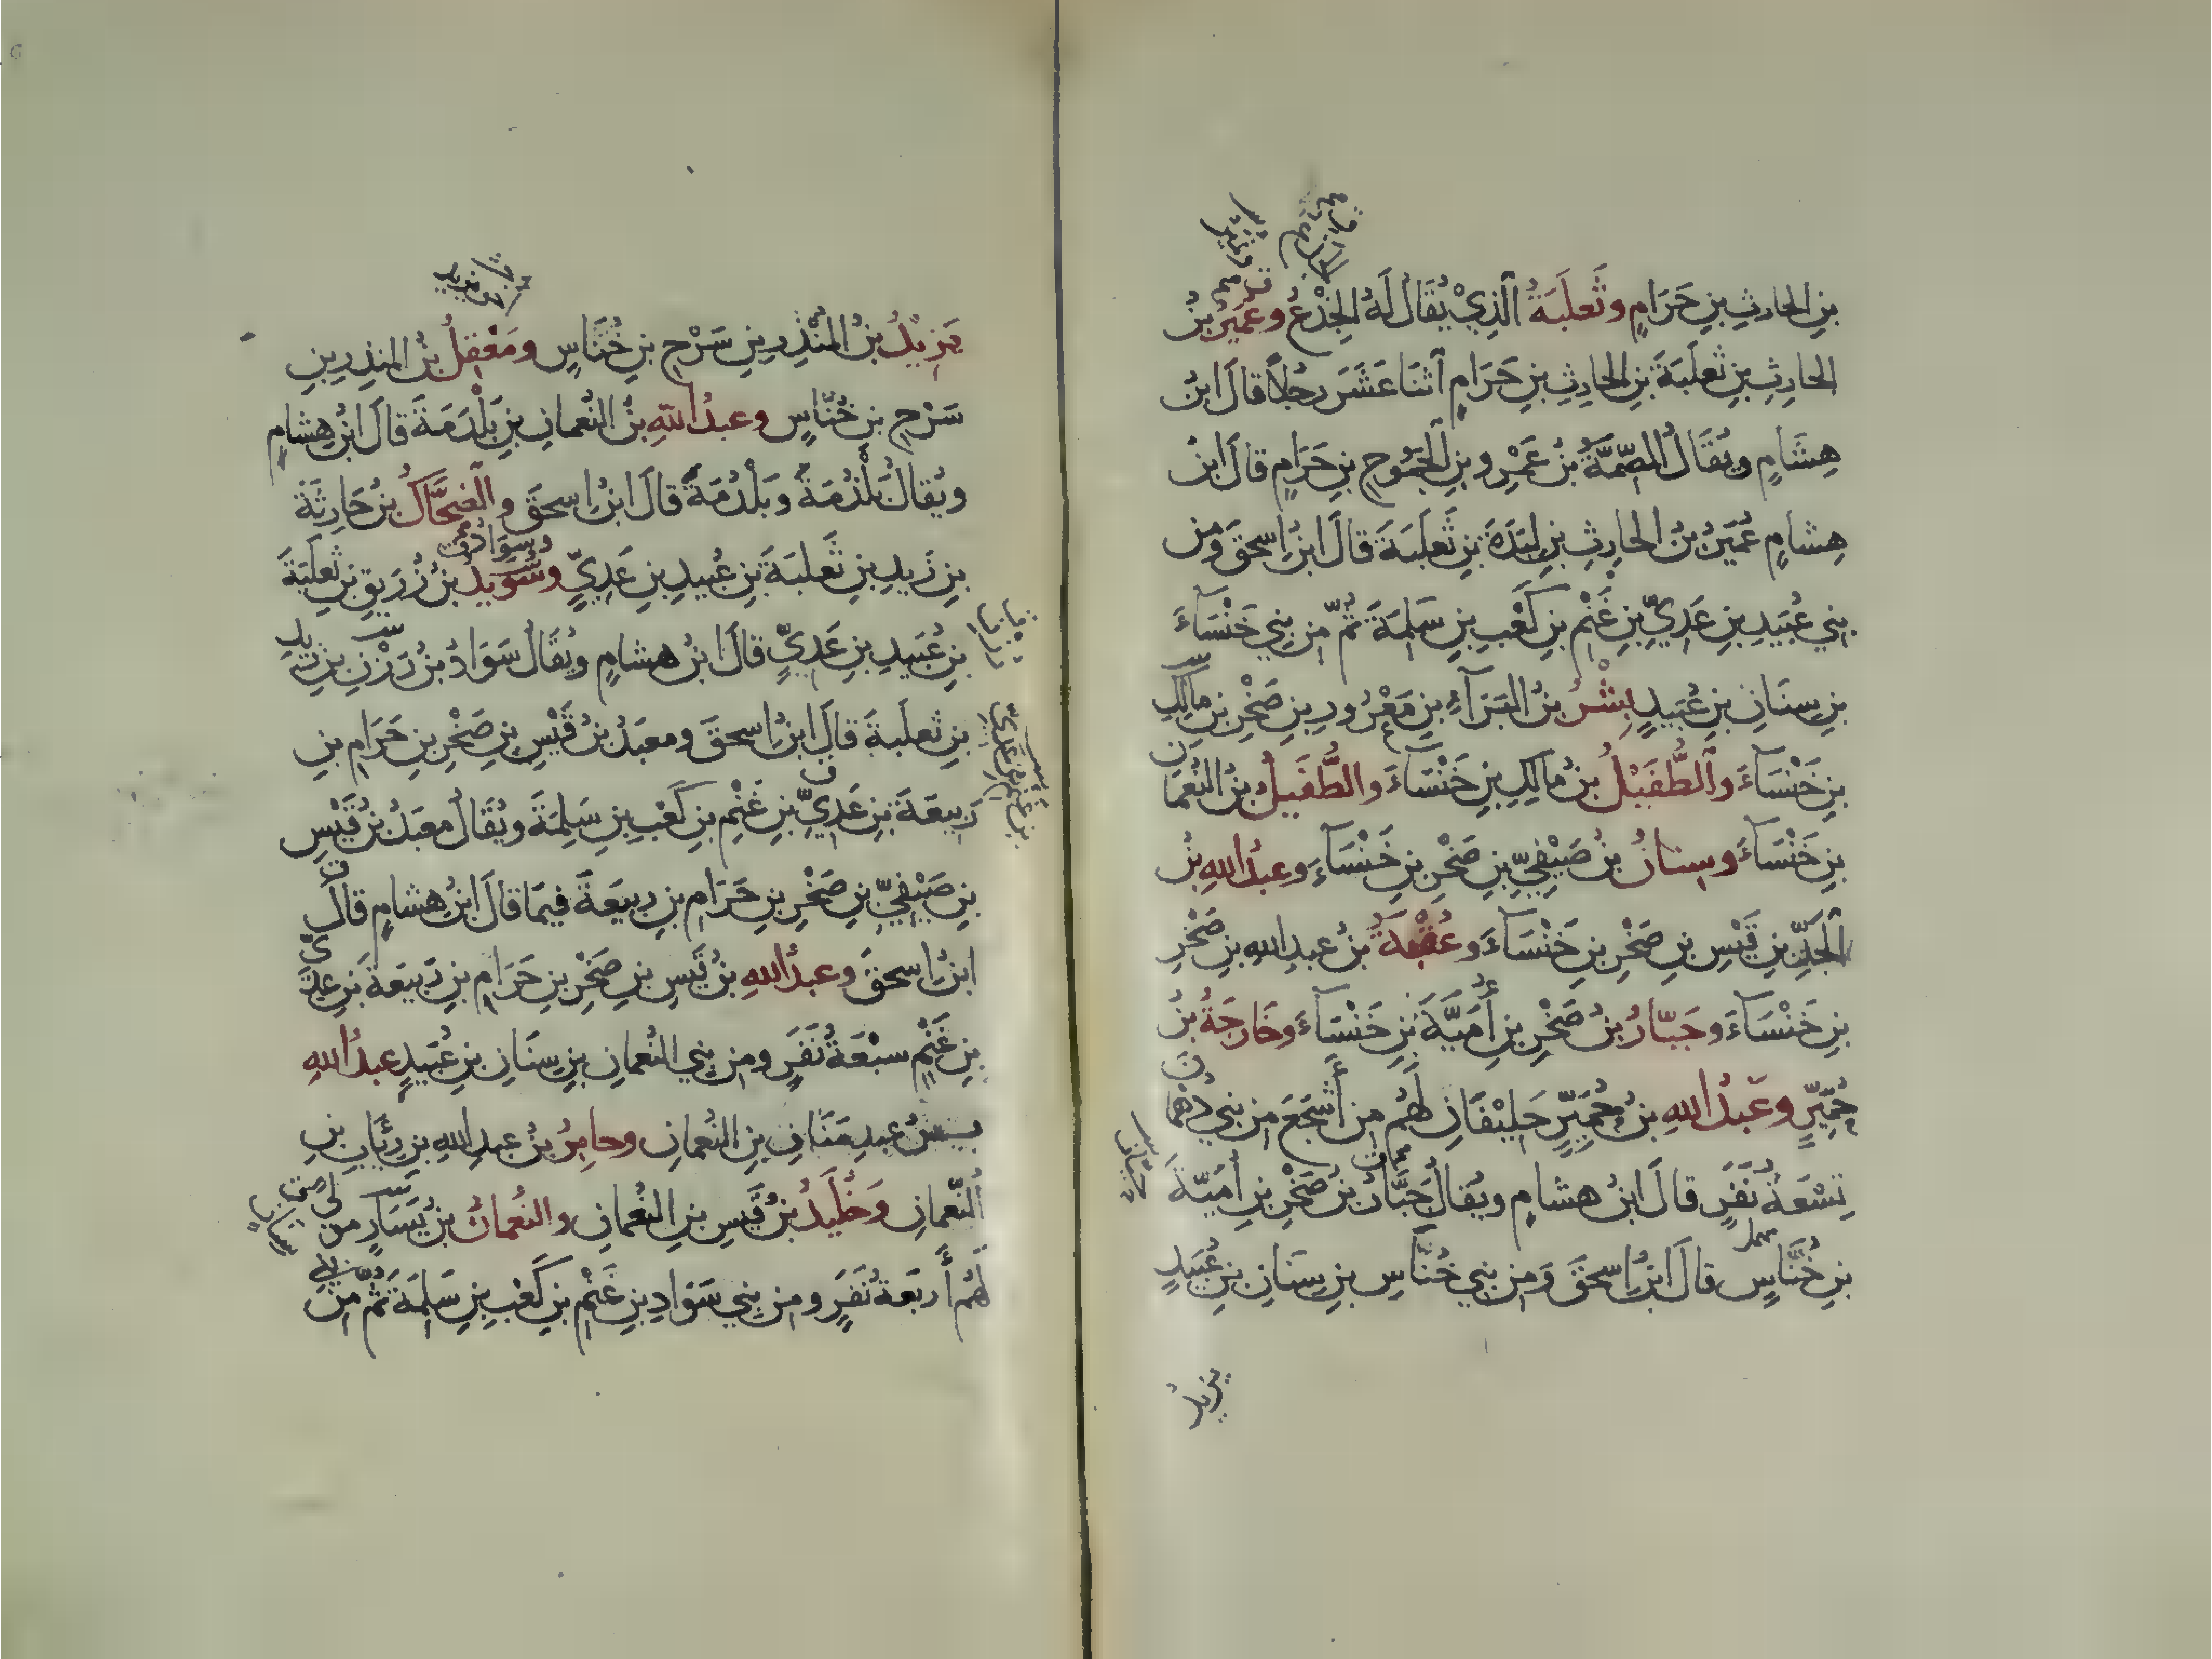 بنِ الحارثِ بنِ حَرَامٍ وثَعلَبَةُ الَّذِيْ يُقَالُ لَهُ الجِذْعُ وعُمَيرُ بْنُ
الحارِثِ بنِ ثَعلَبَةَ بنِ الحارِثِ بنِ حَرَامٍ آثنَا عَشَرَ رجُلاً قالَ ابنُ
هِشَامٍ ويُقَالُ الصِّمَّةُ بنُ عَمْرِو بنِ الجَمُوحِ بنِ حَرَامٍ قالَ ابنُ
هِشامٍ عُمَيرُ بنُ الحارِثِ بنِ لِبْدَةَ بنِ ثَعلَبَةَ قالَ ابنُ اسحقَ ومِن
بنِي عُبَيدِ بنِ عَدِيِّ بنِ غَنْمِ بنِ كَعْبِ بنِ سَلِمَةَ ثُمَّ مِن بنِي خَنْسَآءَ
بنِ سِنَانِ بنِ عُبَيدٍ بِشْرُ بنُ البَرَآءِ بنِ مَعْرُورِ بنِ صَخْرِ بنِ مالِكِ
بنِ خَنْسَآءَ والطُّفَيْلُ بنُ مالِكِ بنِ خَنْسَآءَ والطُّفَيلُ بنُ النُّعمَانِ
بنِ خَنْسَآءَ وسِنانُ بنُ صَيْفِيِّ بنِ صَخْرِ بنِ خَنْسَآءِ وعبدُ اللهِ بنُ
الجَدِّ بنِ قَيْسِ بنِ صَخْرِ بنِ خَنْسَآءَ وعُقْبَةُ بنُ عبدِ اللهِ بنِ صَخْرِ
بنِ خَنْسَآءَ وجَبّارُ بنُ صَخْرِ بنِ أُمَيَّةَ بنِ خَنْسَآءَ وخَارجَةُ بنُ
حُمَيِّرٍ وعَبدُ اللهِ بنُ حُمَيِّرٍ حَلِيْفَانِ لَهُم مِن أَشجَعَ مِن بنِي دُهْمَانَ
تِسْعَةُ نَفَرٍ قالَ ابنُ هشامٍ ويُقالُ جَبَّارُ بنُ صَخْرِ بنِ أُمَيّةَ
بنِ خُنَاسٍ قالَ ابنُ اسحقَ ومِن بنِي خُنَاسِ بنِ سِنَانِ بنِ عُبَيدٍ
يزيدُ
يَزِيْدُ بنُ المُنْذِرِ بنِ سَرْحِ بنِ خُنَّاسٍ ومَعْقِلُ بنُ المنذِرِ بنِ
سَرْحِ بنِ خُنّاسٍ وعبدُ اللهِ بنُ النُّعمانِ بنِ بَلْدَمَةَ قالَ ابنُ هِشامٍ
ويُقالُ بُلْدُمَةُ وبَلْدُمَةُ قالَ ابنُ اسحقَ والضَّحَّاكُ بنُ حَارِثَةَ
بنِ زَيدِ بنِ ثَعلبَةَ بنِ عُبَيدِ بنِ عَدِيٍّ وسُوَيدُ بنُ زُرَيقِ بنِ ثَعلَبَةَ
بنِ عُبَيدِ بنِ عَدِيٍّ قالَ ابنُ هشامٍ ويُقَالُ سَوَادُ بنُ رَزْنِ بنِ زيدِ
بنِ ثعلَبةَ قالَ ابنُ اسحقَ ومعبَدُ بنُ قَيْسِ بنِ صَخْرِ بنِ حَرَامِ بنِ
رَبِيعَةَ بنِ عَدِيِّ بنِ غَنْمِ بنِ كَعْبِ بنِ سَلِمَةَ ويُقَالُ معبَدُ بنُ قَيْسِ
بنِ صَيْفِيِّ بنِ صَخْرِ بنِ حَرَامِ بنِ رِبيعَةَ فيمَا قالَ ابنُ هشامٍ قالَ
ابنُ اسحقَ وعبدُ اللهِ بنُ قَيسِ بنِ صَخْرِ بنِ حَرَامِ بنِ رَبيعَةَ بنِ عَدِيِّ
بنِ غَنْمٍ سبْعَةُ نَفَرٍ ومِن بنِي النُّعمانِ بنِ سِنَانِ بنِ عُبَيدٍ عبدُ اللهِ
بنُ عبدِ مَنَافِ بنِ النُّعمانِ وجابِرُ بنُ عبدِ اللهِ بنِ رِئَابِ بنِ
النُّعمانِ وَخُلَيدُ بنُ قَيسِ بنِ النُّعمانِ والنُعمانُ بنُ يَسَارٍ مولى
لَهُم أَربَعَةُ نَفَرٍ ومِن بنِي سَوَادِ بنِ غَنْمِ بنِ كَعْبِ بنِ سَلِمَةَ ثُمَّ مِن